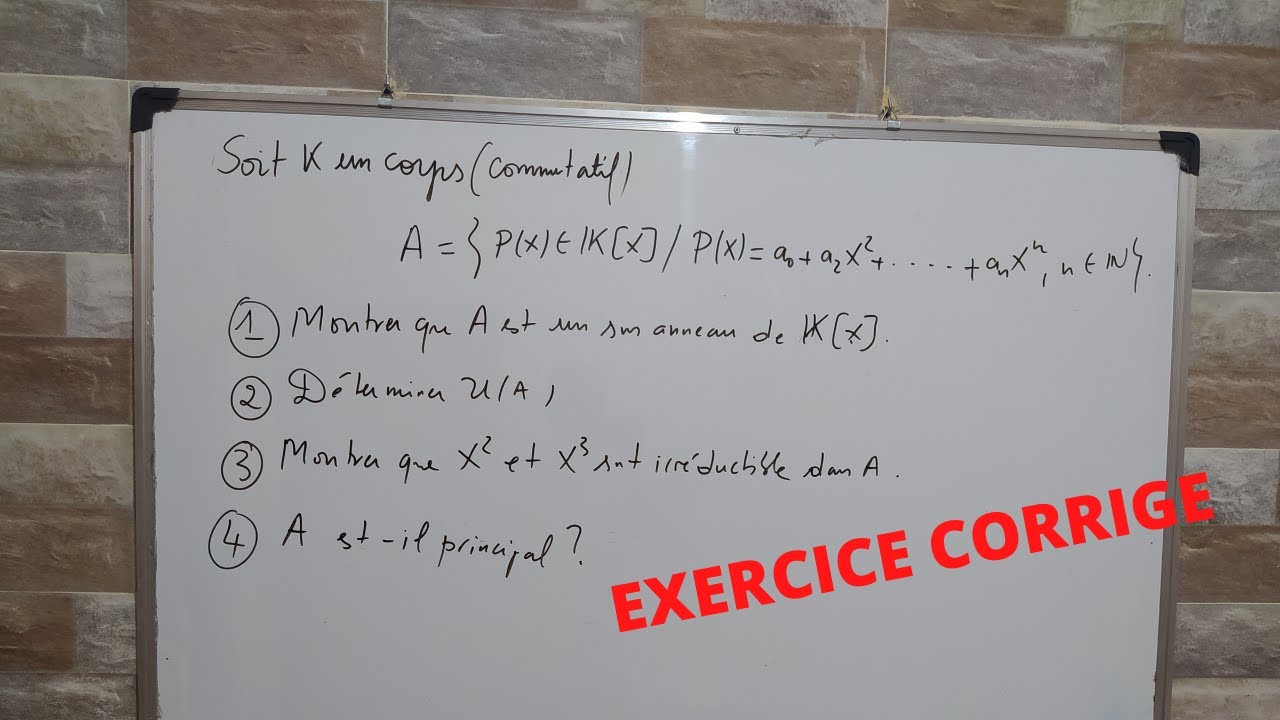 Soit K un corps (commutatif)
A = { P(x) ∈ K[x] / P(x) = a₀ + a₂X² + ..... + aₙXⁿ, n ∈ ℕ }.
① Montrer que A est un sous anneau de K[x].
② Déterminer U(A)
③ Montrer que X² et X³ sont irréductible dans A.
④ A est-il principal ?
EXERCICE CORRIGE